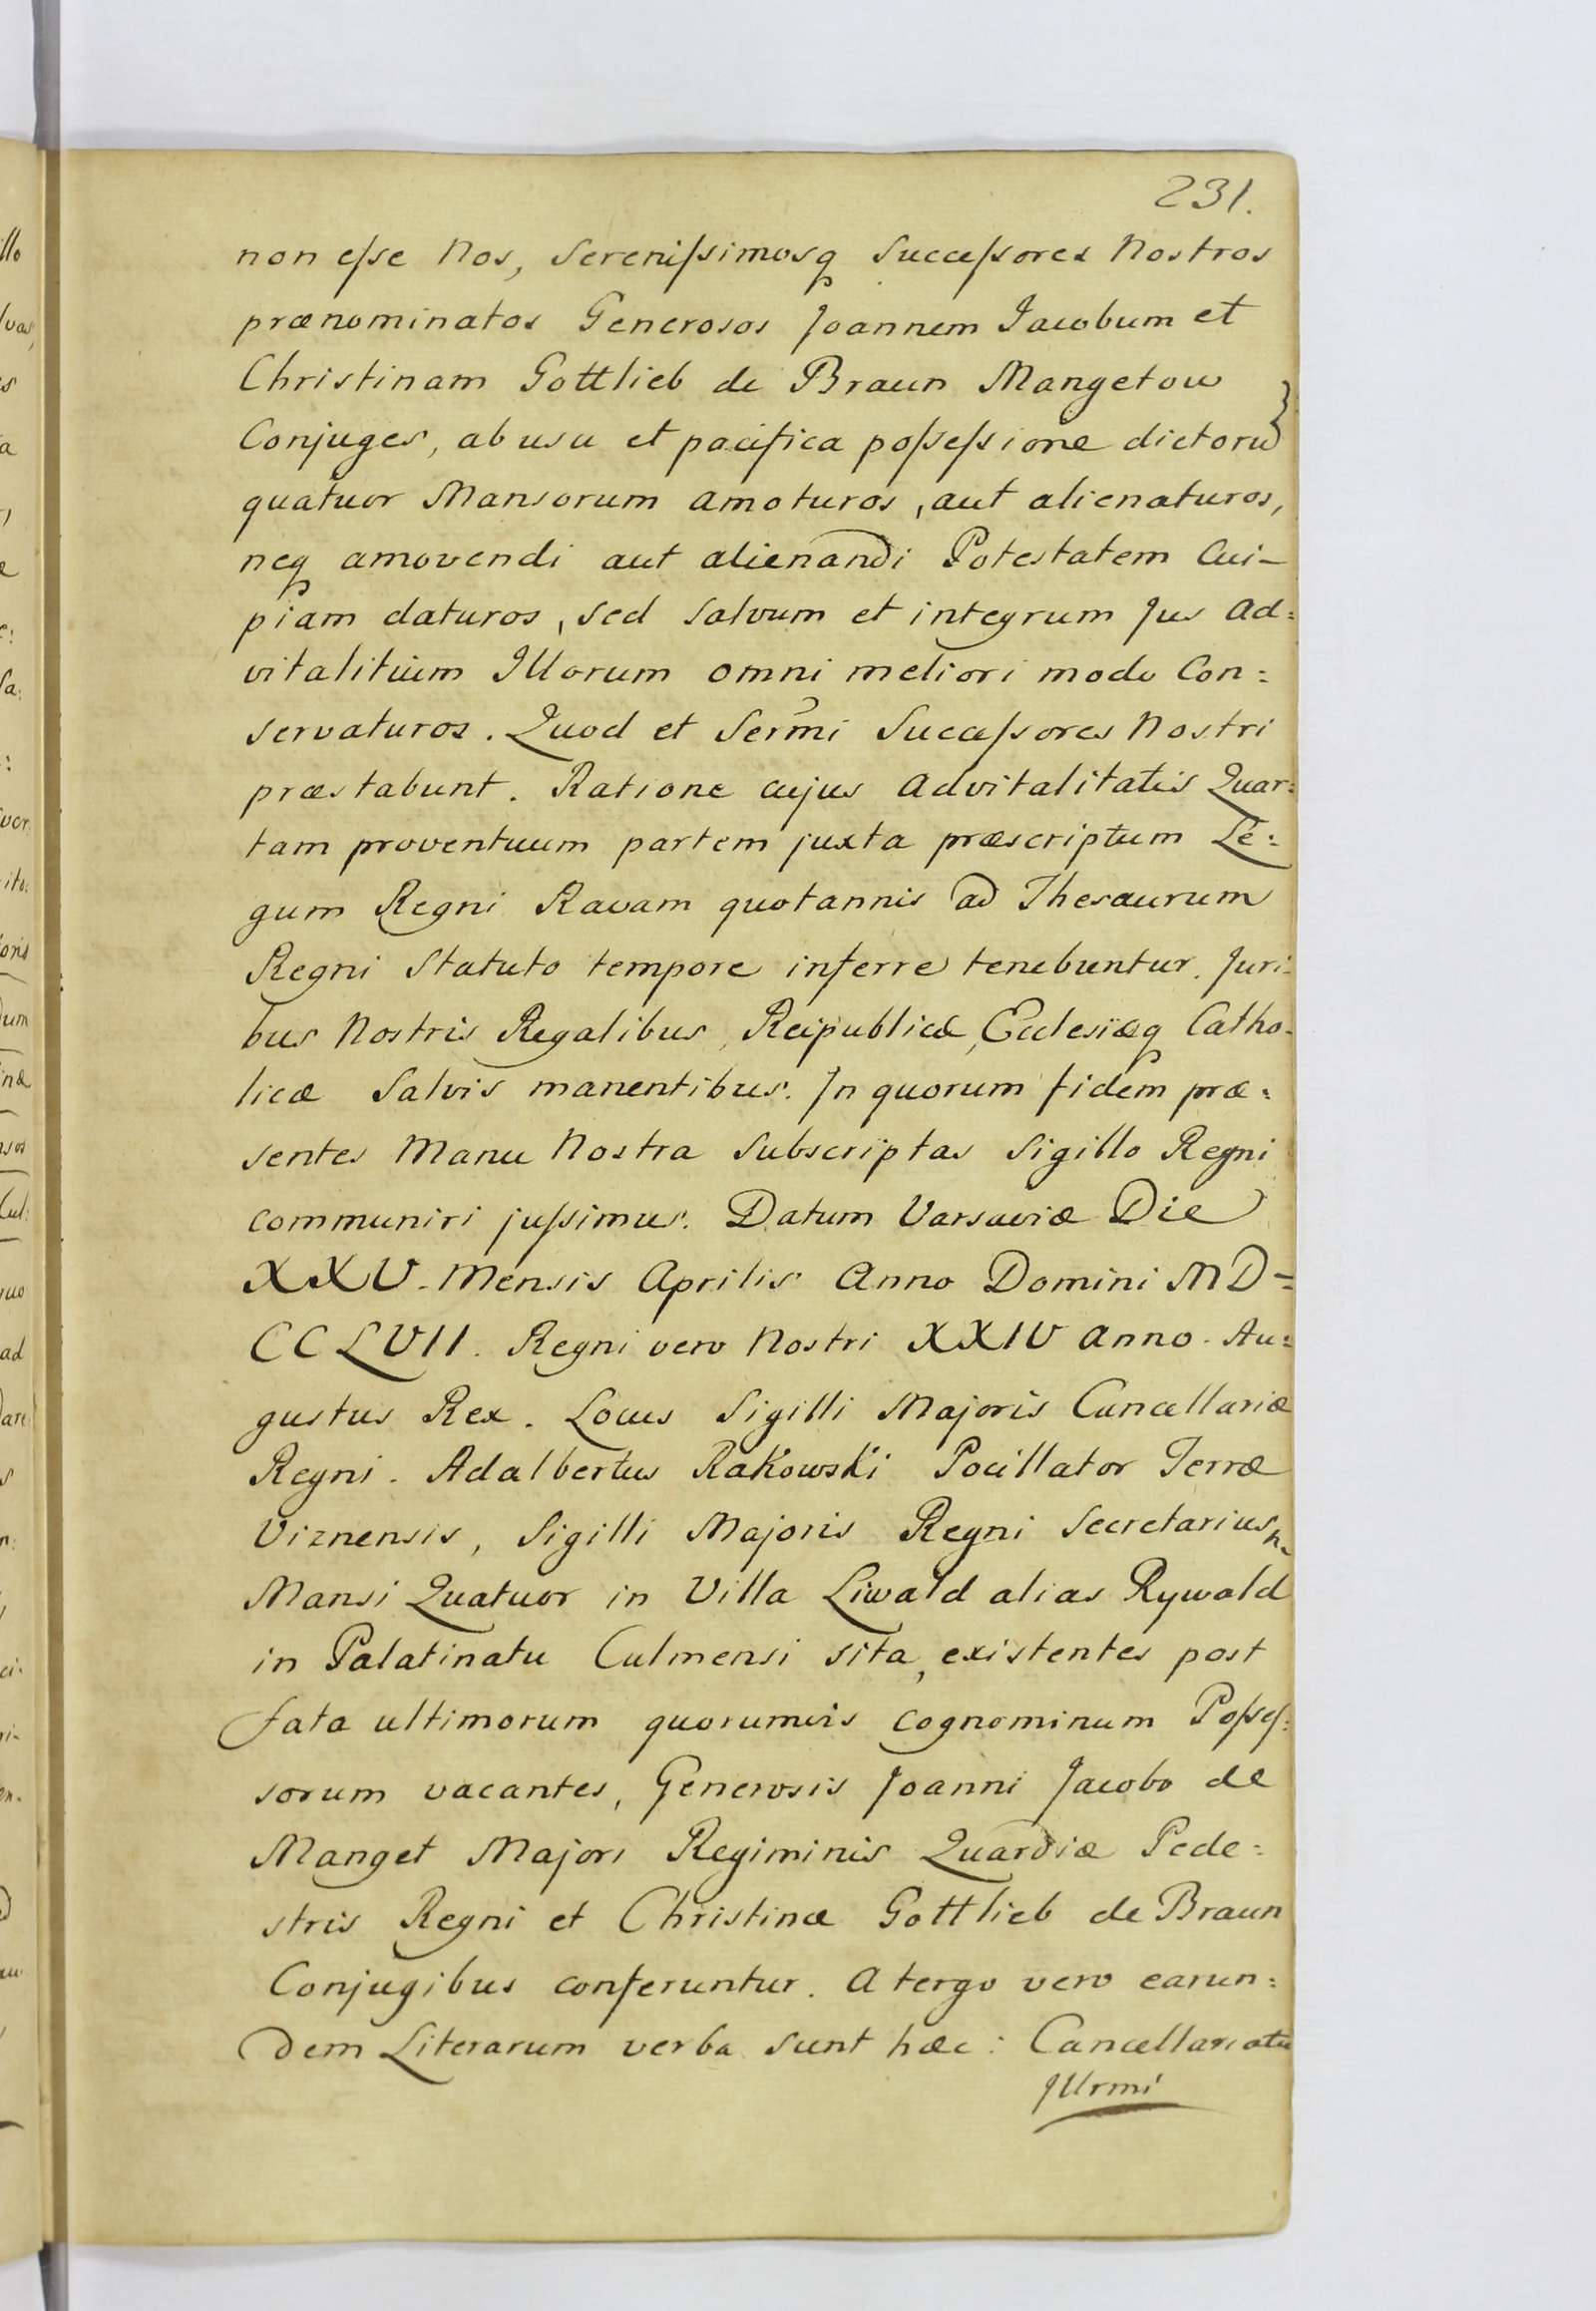 231.
non eſse Nos, Sereniſsimosq Succeſsores Nostros
prænominatos Generosos Joannem Jacobum et
Christinam Gottlieb de Braun Mangetow
Conjuges, ab usu et pacifica poſseſsione dictoru
quatuor Mansorum amoturos, aut alienaturos,
neq amovendi aut alienandi Potestatem Cui-
piam daturos, sed salvum et integrum Jus Ad:
vitalitium Illorum omni meliori modo Con:
servaturos. Quod et Sermi Succeſsores Nostri
præstabunt. Ratione cujus Advitalitatis Quar:
tam proventuum partem juxta præscriptum Le:
gum Regni Ravam quotannis ad Thesaurum
Regni Statuto tempore inferre tenebuntur. Juri:
bus Nostris Regalibus, Reipublicæ, Ecclesiæq Catho-
licæ Salvis manentibus. In quorum fidem præ:
sentes Manu Nostra Subscriptas Sigillo Regni
communiri juſsimus. Datum Varsaviæ Die
XXV. Mensis Aprilis Anno Domini MD=
CCLVII. Regni vero Nostri XXIV Anno. Au:
gustus Rex. Locus Sigilli Majoris Cancellariæ
Regni. Adalbertus Rakowski Pocillator Terræ
Viznensis, Sigilli Majoris Regni Secretarius
Mansi Quatuor in Villa Liwald alias Rywald
in Palatinatu Culmensi sita, existentes post
fata ultimorum quorumvis cognominum Poſseſ:
sorum vacantes, Generosis Joanni Jacobo de
Manget Majori Regiminis Quardiæ Pede:
stris Regni et Christinæ Gottlieb de Braun
Conjugibus conferuntur. A tergo vero earun:
dem Literarum verba sunt hæc: Cancellariatu
Illrmi